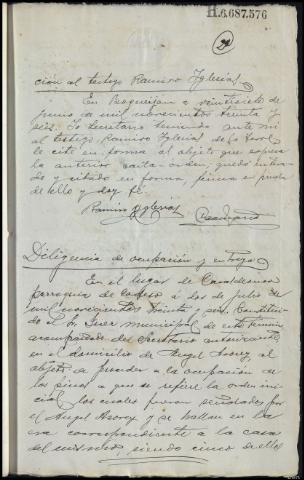 H.6.687.576
29
ción al testigo Ramiro Iglesias
En Boqueijón a veintisiete de
junio de mil novecientos treinta y
seis. Yo Secretario teniendo ante mí
al testigo Ramiro Iglesias de
le cité en forma al objeto que expresa
la anterior carta orden, quedó entera-
do y citado en forma, firma en prueba
de ello y doy fé.
Ramiro Iglesias
Diligencia de ocupación y entrega
En el lugar de
parroquia de a dos de julio de
mil novecientos treinta y seis. Constituido
el Sr. Juez municipal de este término
acompañado del Secretario autorizante
en el domicilio de Angel Asorey, al
objeto de proceder a la ocupación de
los pinos a que se refiere la orden ini-
cial, los cuales fueron señalados por
el Angel Asorey y se hallan en la
era correspondiente a la casa
del mismo, siendo cinco de ellos